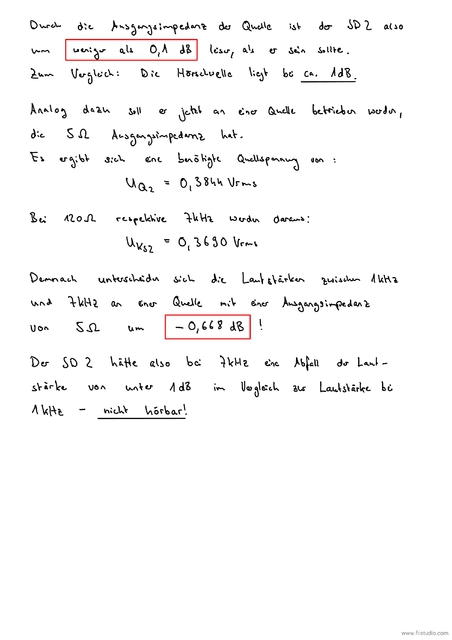 Durch die Ausgangsimpedanz der Quelle ist der SD2 also
um weniger als 0,1 dB leiser, als er sein sollte.
Zum Vergleich: Die Hörschwelle liegt bei ca. 1dB.
Analog dazu soll er jetzt an einer Quelle betrieben werden,
die 5Ω Ausgangsimpedanz hat.
Es ergibt sich eine benötigte Quellspannung von:
UQ2 = 0,3844 Vrms
Bei 120Ω respektive 7kHz werden daraus:
UKS2 = 0,3690 Vrms
Demnach unterscheiden sich die Lautstärken zwischen 1kHz
und 7kHz an einer Quelle mit einer Ausgangsimpedanz
von 5Ω um -0,668 dB !
Der SD2 hätte also bei 7kHz eine Abfall der Laut-
stärke von unter 1dB im Vergleich zur Lautstärke bei
1kHz – nicht hörbar!
www.fiistudio.com